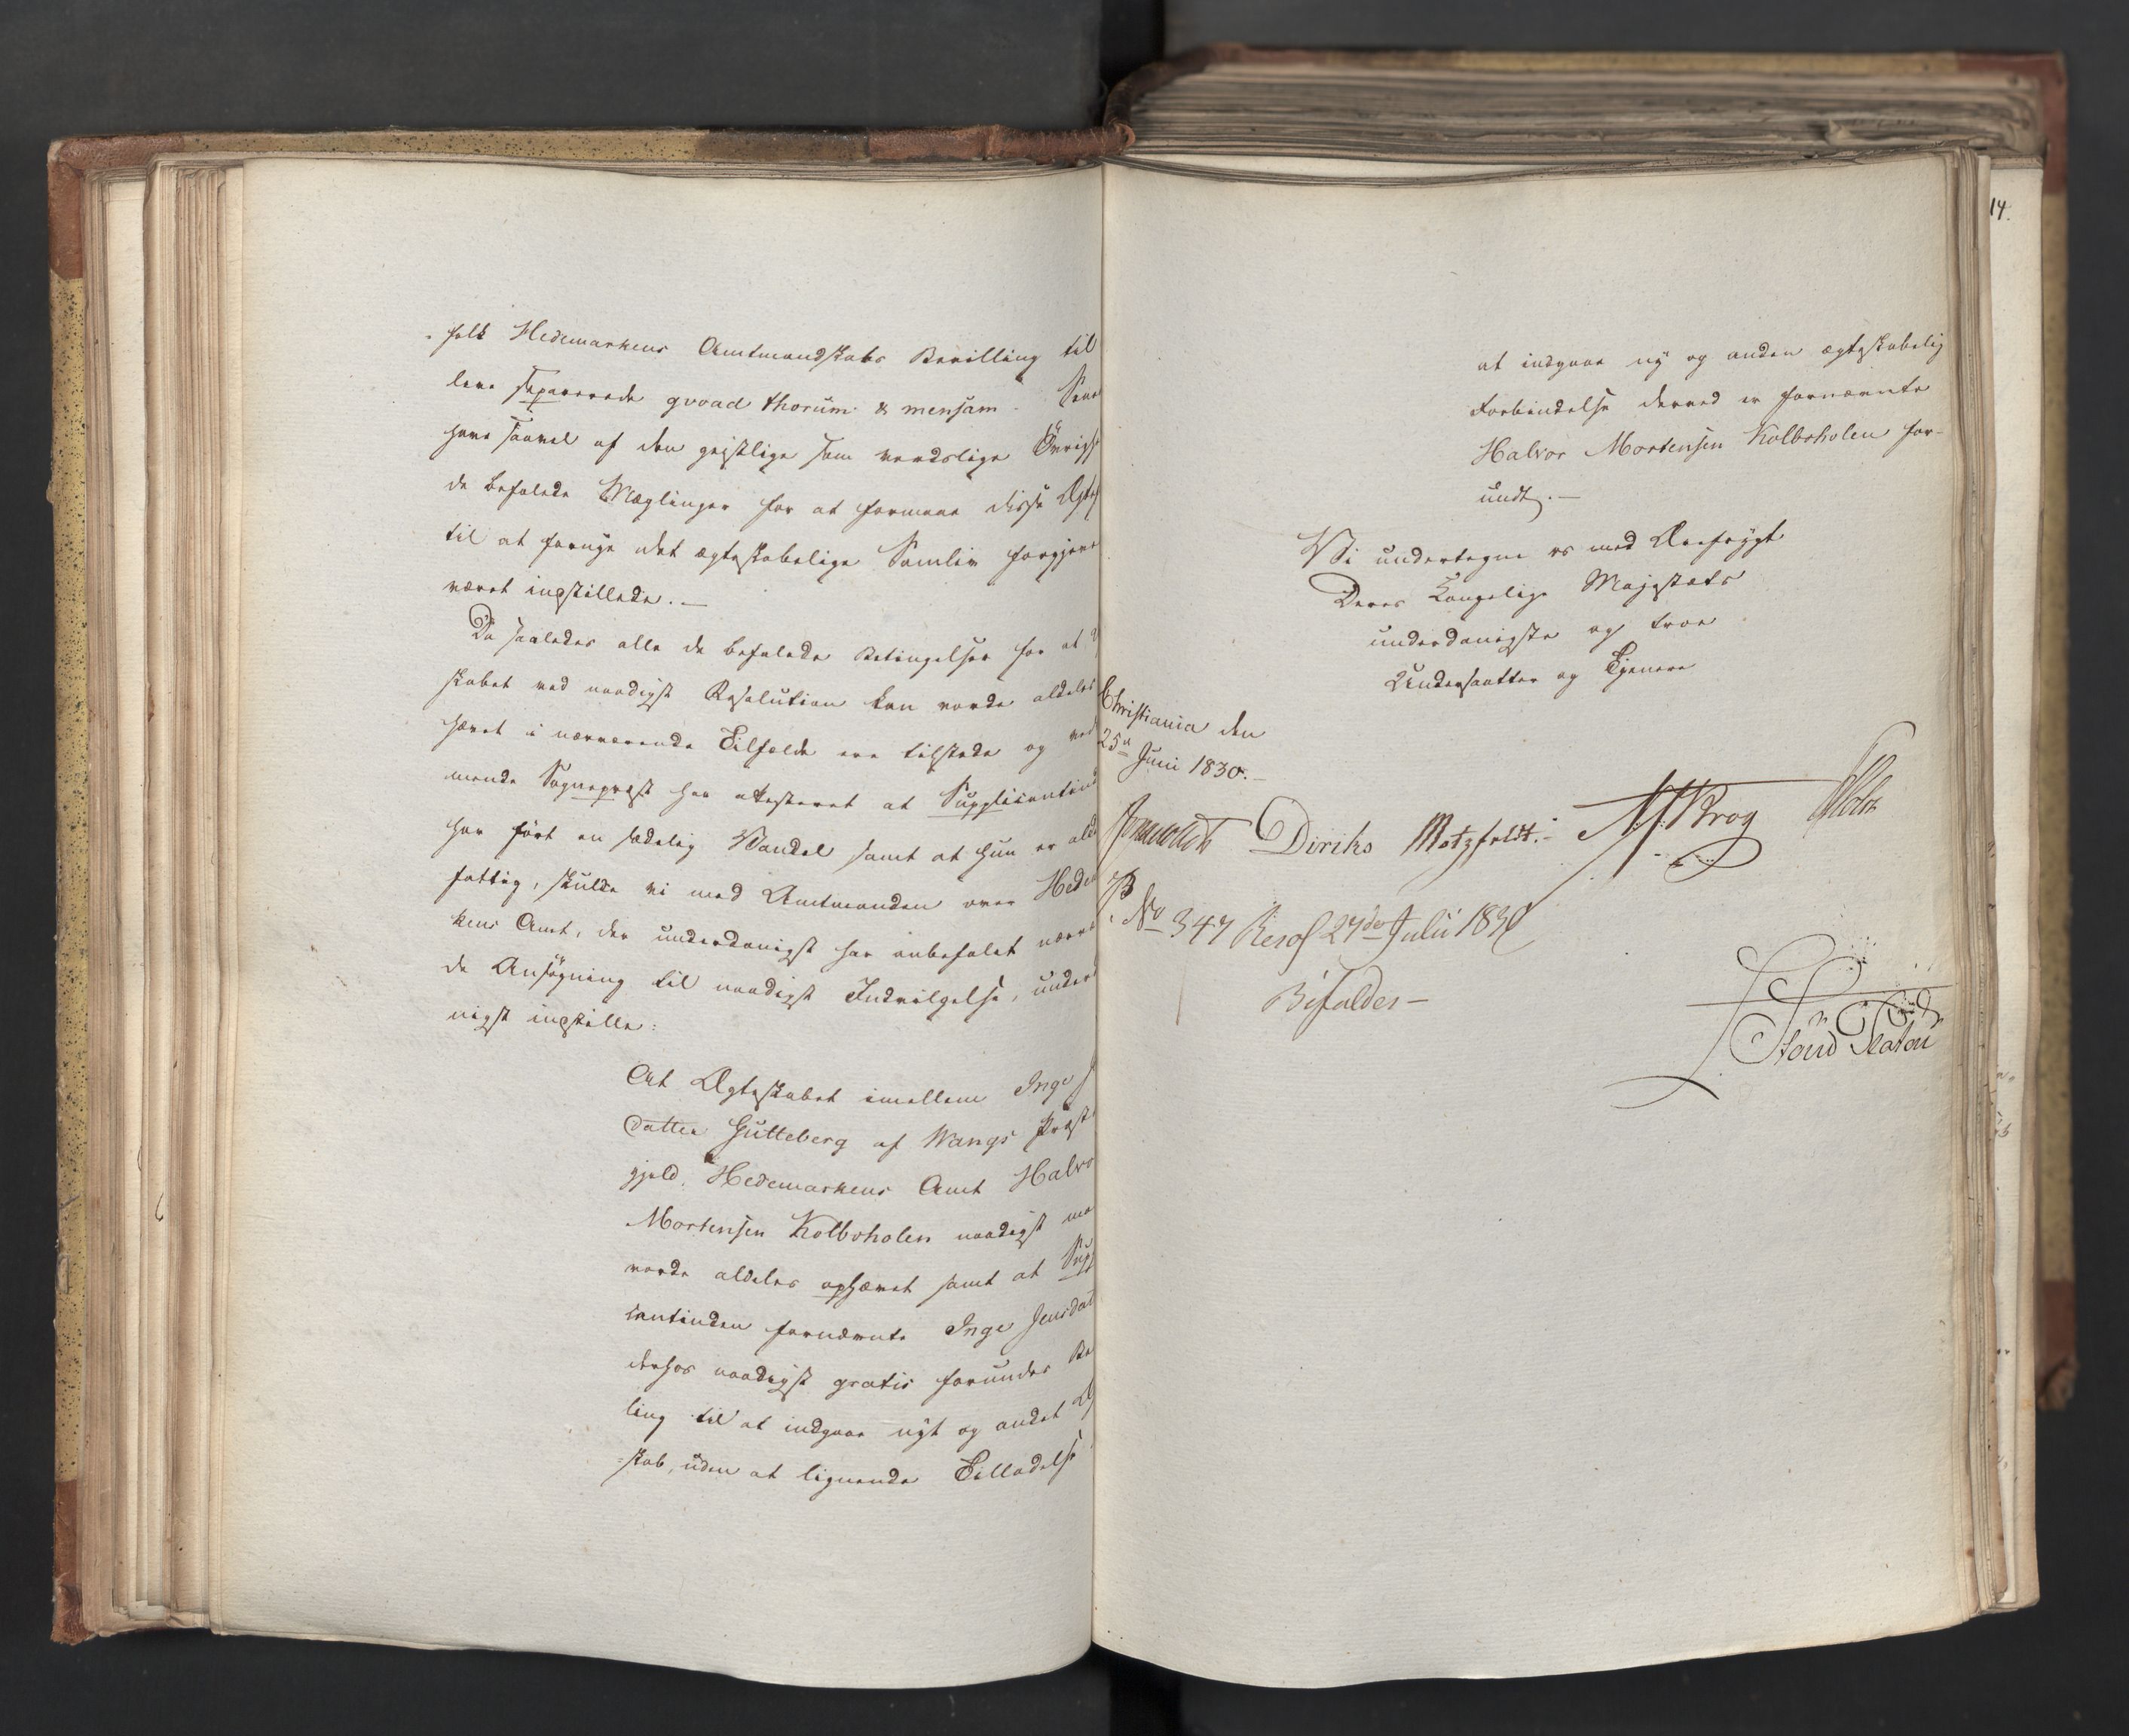 folk Hedemarkens Amtmandskabs Bevilling til
leve separerede qvoad thorum & mensam. Sene
have saavel af den geistlige som verdslige Øvrigh
de befalede Mæglinger for at formaae disse Ægtef
til at fornye det ægteskabelige Samliv forgjæve
været indstillede. —
Da saaledes alle de befalede Betingelser for at
skabet ved naadigst Resolution kan vorde aldeles
hævet i nærværende Tilfælde ere tilstede og ved
mende Sognepræst har attesteret at Supplicantind
har ført en sædelig Vandel samt at hun er alde
fattig, skulde vi med Amtmanden over Hede
kens Amt, der underdanigst har anbefalet nærv
de Ansøgning til naadigst Indvilgelse, under
nigst indstille:
At Ægteskabet imellem Inge J
datter Gutteberg af Wangs Præst
gjeld, Hedemarkens Amt Halvo
Mortensen Kolbsholen naadigst ma
vorde aldeles ophævet samt at Supp
cantinden fornævnte Inge Jensdat
derhos naadigst gratis forundes Be
ling til at indgaae nyt og andet Æ
=skab, uden at lignende Tilladelse
14.
at indgaae ny og anden ægteskabelig
Forbindelse derved er fornævnte
Halvor Mortensen Kolbsholen for-
undt. —
Vi undertegne os med Ærefrygt
Deres Kongelige Majestæts
underdanigste og troe
Undersaatter og Tjenere
Christiania den
25de Juni 1830. —
Diriks Motzfeldt. — Krog Holst
No 347 Resol 27de Julii 1830
Bifaldes —